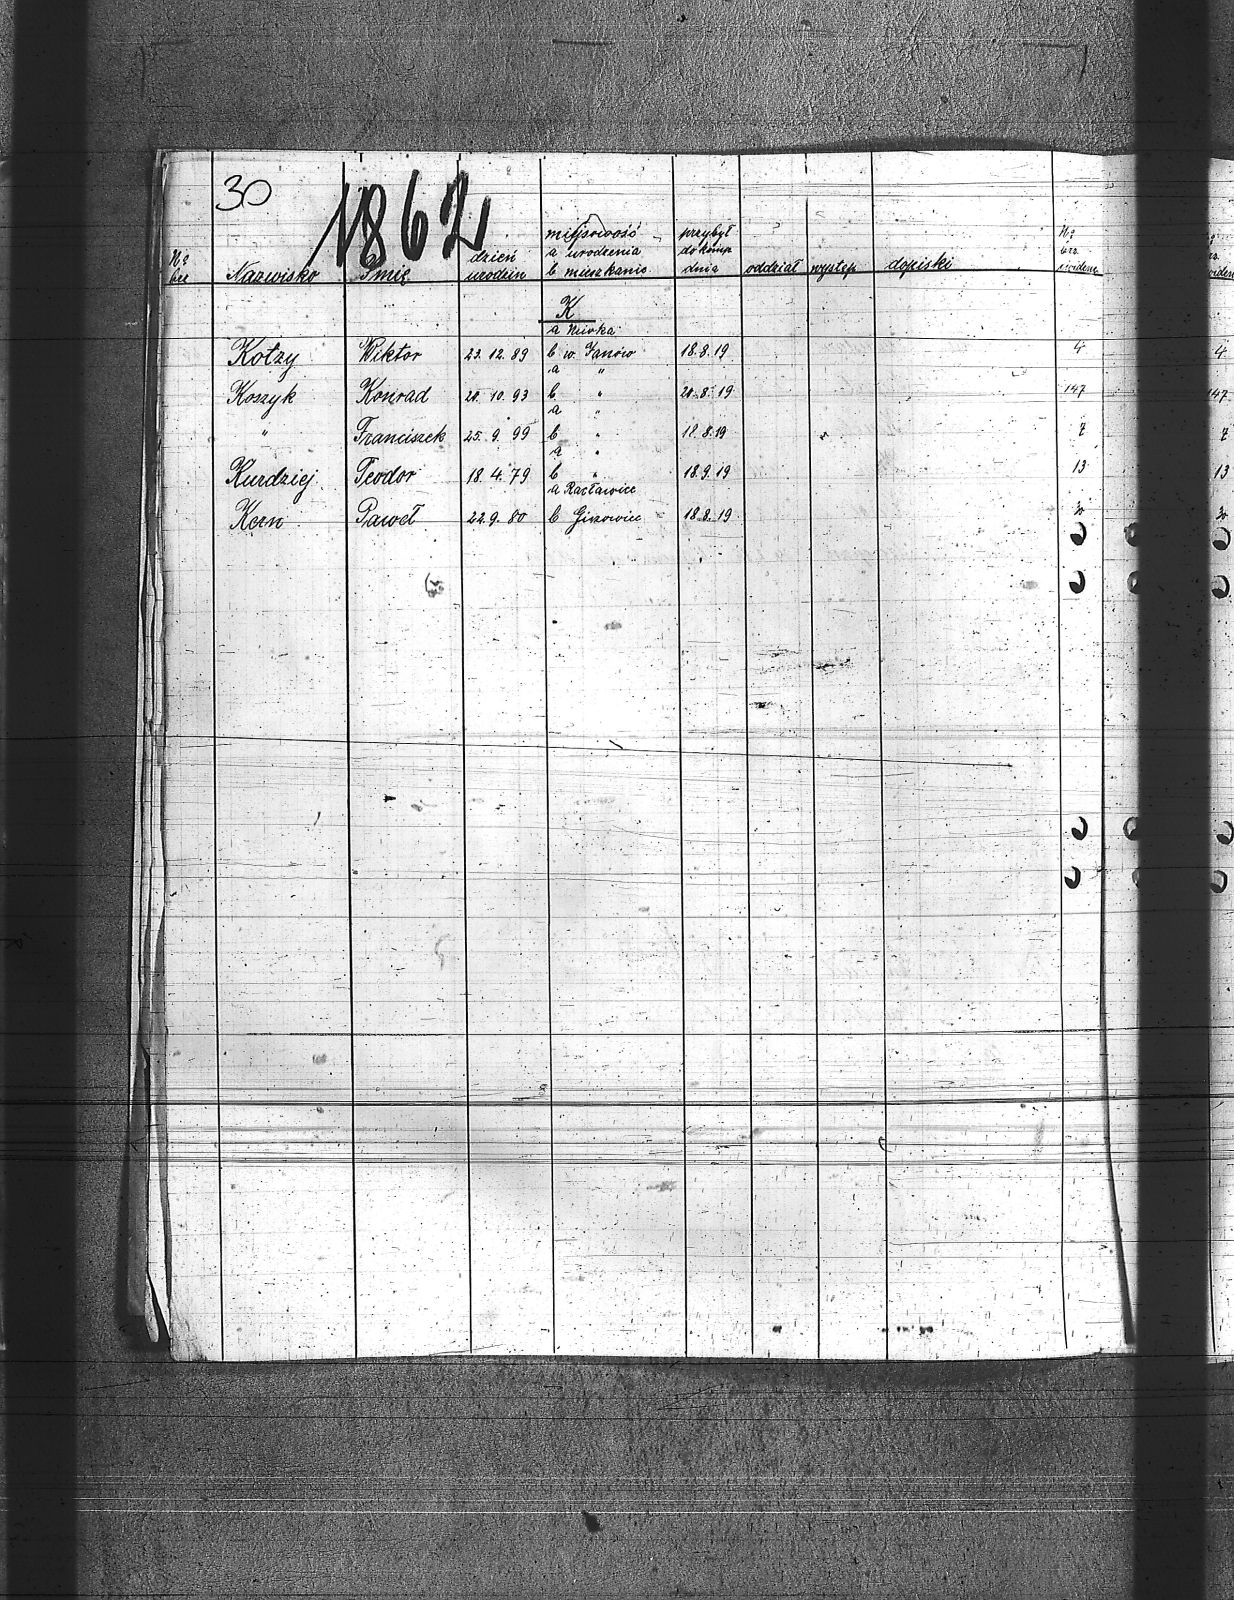 30
1862
miejscowość przybył № 
№ dzień a urodzenia do komp. brz.
brz Nazwisko Imię urodzin b mieszkanie dnia oddział występ dopiski ewidenc
K
a Niwka
Kotzy Wiktor 23.12.89 b w. Janów 18.8.19 4
a "
Koszyk Konrad 20.10.93 b " 20.8.19 147
a "
" Franciszek 25.9.99 b " 18.8.19 7
a "
Kurdziej Teodor 18.4.79 b " 18.9.19 13
a Racławice
Kern Paweł 22.9.80 b Giszowiec 18.8.19 30